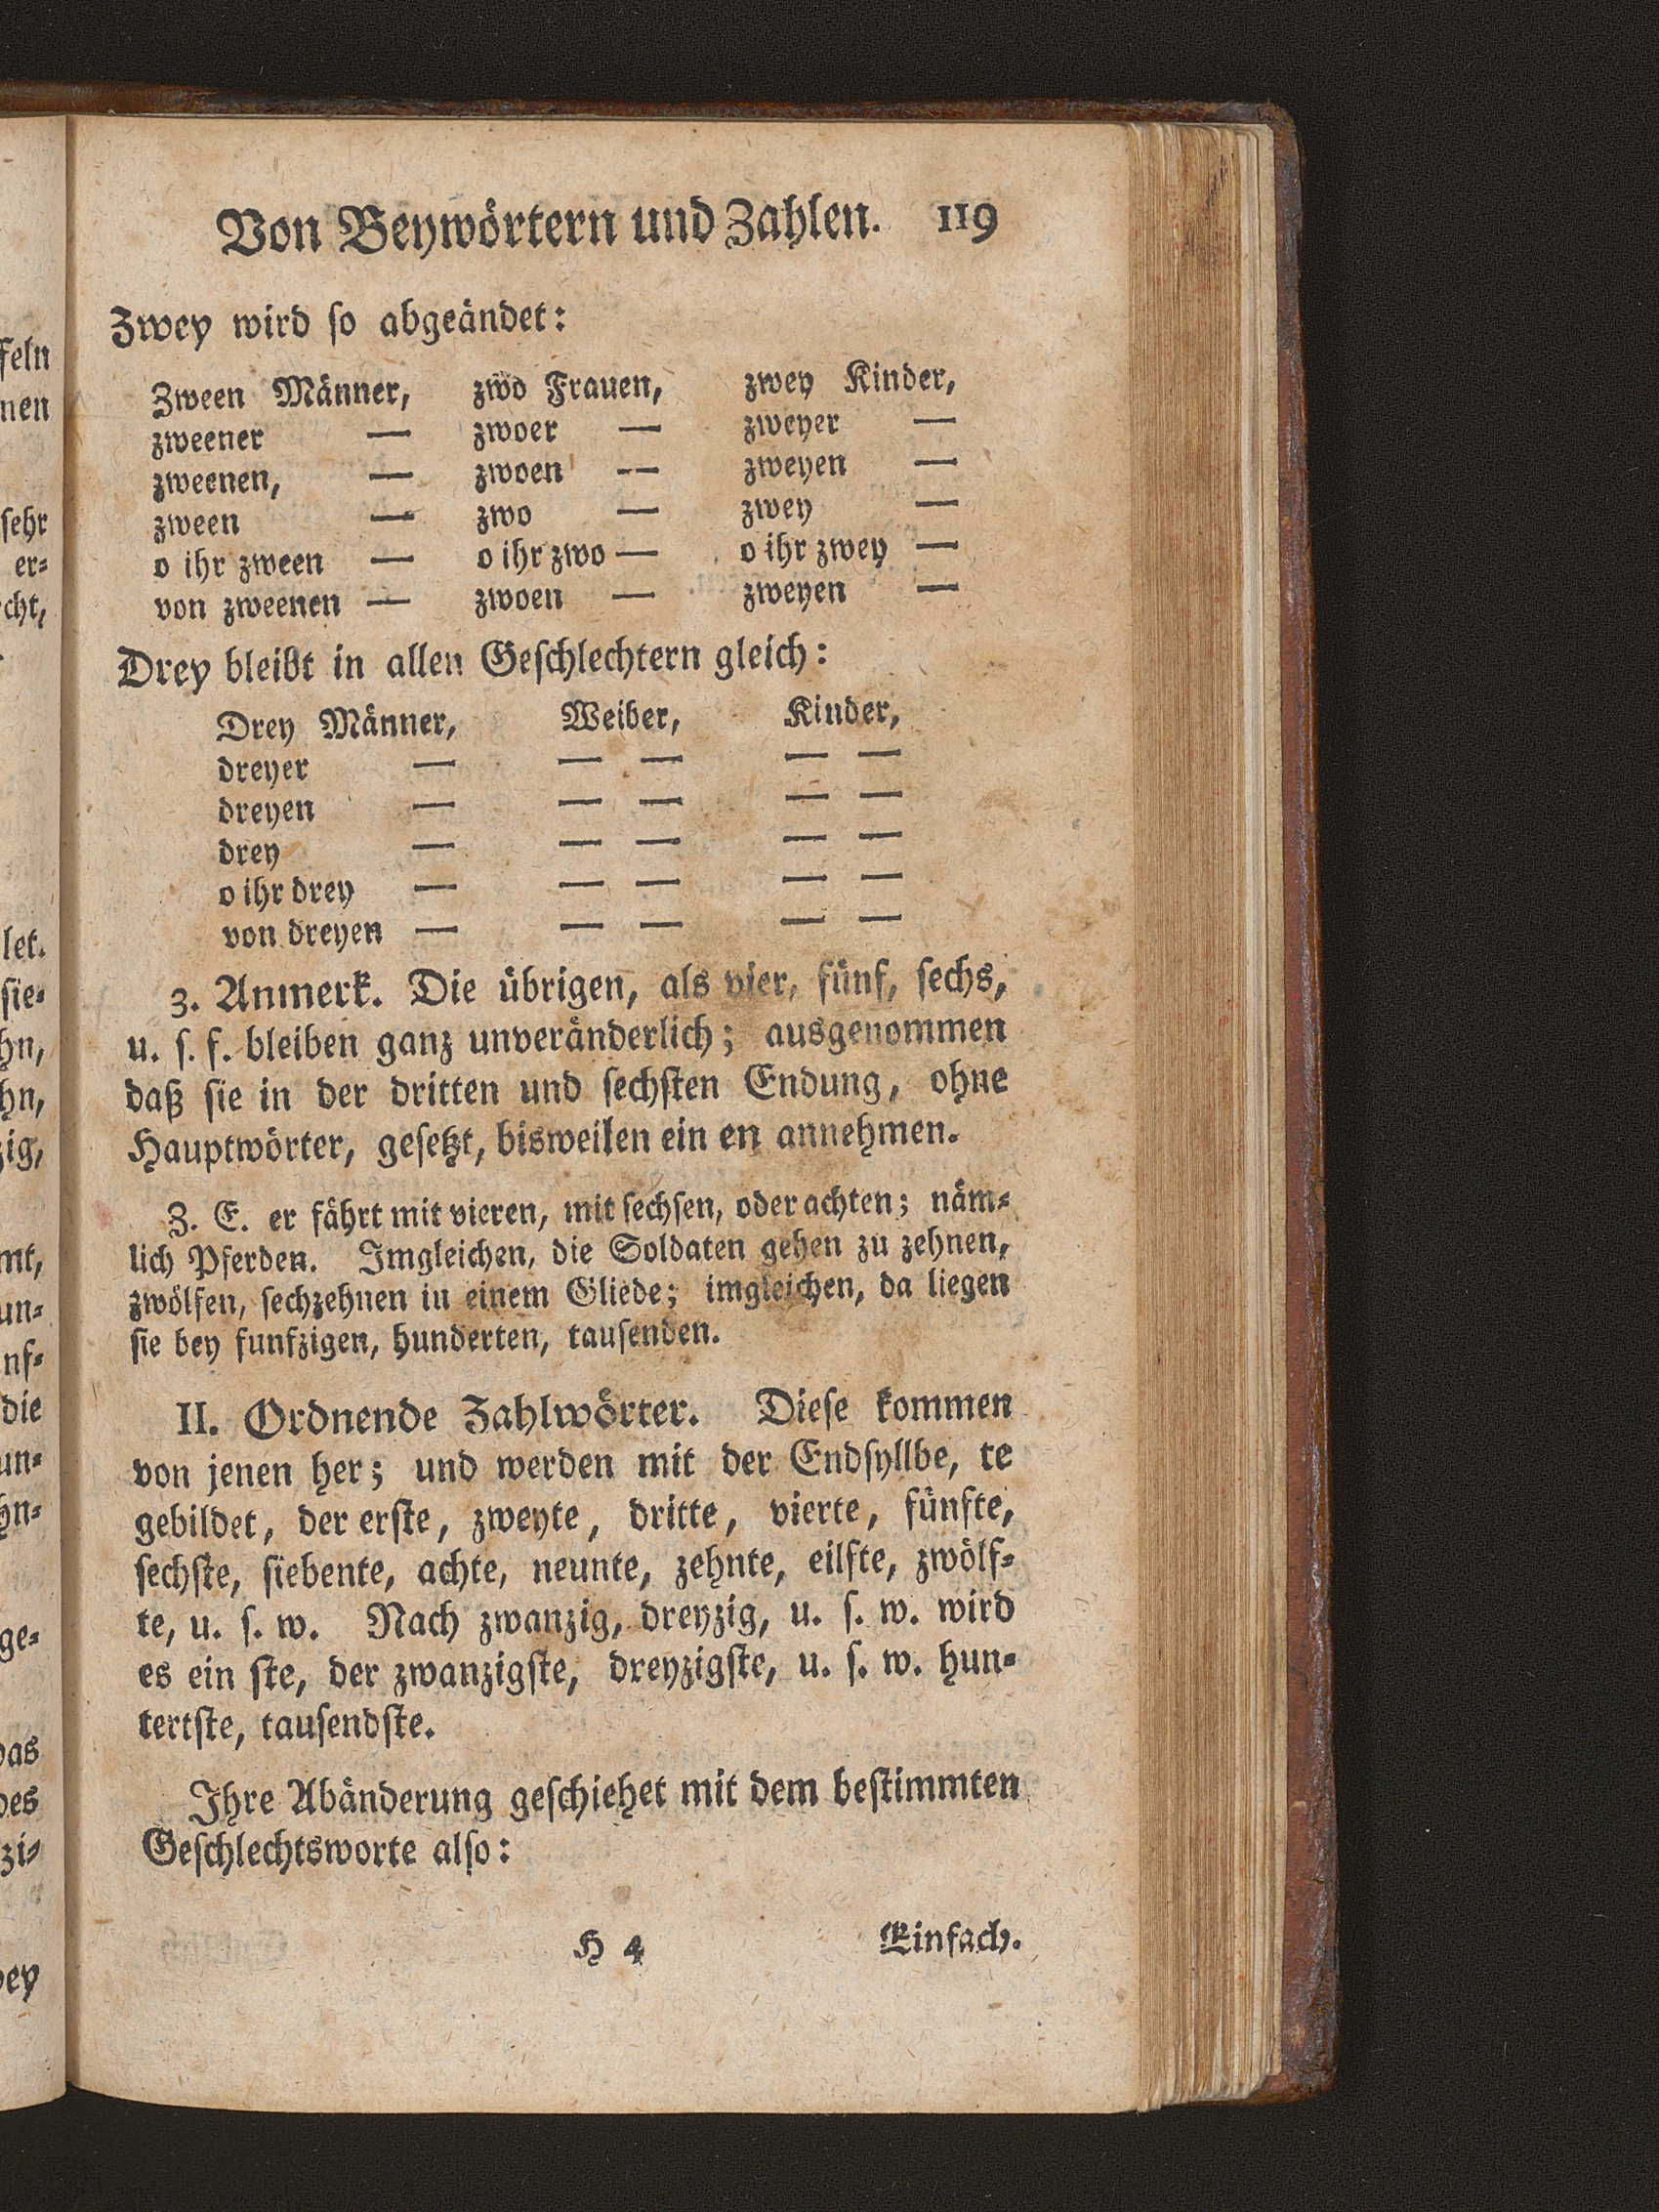 Von Beywörtern und Zahlen. 119
Zwey wird ſo abgeändet:
Zween Männer, zwo Frauen, zwey Kinder,
zweener — zwoer — zweyer —
zweenen, — zwoen — zweyen —
zween — zwo — zwey —
o ihr zween — o ihr zwo — o ihr zwey —
von zweenen — zwoen — zweyen —
Drey bleibt in allen Geſchlechtern gleich:
Drey Männer, Weiber, Kinder,
dreyer — — — — —
dreyen — — — — —
drey — — — — —
o ihr drey — — — — —
von dreyen — — — — —
3. Anmerk. Die übrigen, als vier, fünf, ſechs,
u. ſ. f. bleiben ganz unveränderlich; ausgenommen
daß ſie in der dritten und ſechſten Endung, ohne
Hauptwörter, geſetzt, bisweilen ein en annehmen.
Z. E. er fährt mit vieren, mit ſechſen, oder achten; näm⸗
lich Pferden. Imgleichen, die Soldaten gehen zu zehnen,
zwölfen, ſechzehnen in einem Gliede; imgleichen, da liegen
ſie bey funfzigen, hunderten, tauſenden.
II. Ordnende Zahlwörter. Dieſe kommen
von jenen her; und werden mit der Endſyllbe, te
gebildet, der erſte, zweyte, dritte, vierte, fünfte,
ſechſte, ſiebente, achte, neunte, zehnte, eilfte, zwölf⸗
te, u. ſ. w. Nach zwanzig, dreyzig, u. ſ. w. wird
es ein ſte, der zwanzigſte, dreyzigſte, u. ſ. w. hun⸗
tertſte, tauſendſte.
Ihre Abänderung geſchiehet mit dem beſtimmten
Geſchlechtsworte alſo:
H 4 Einfach.